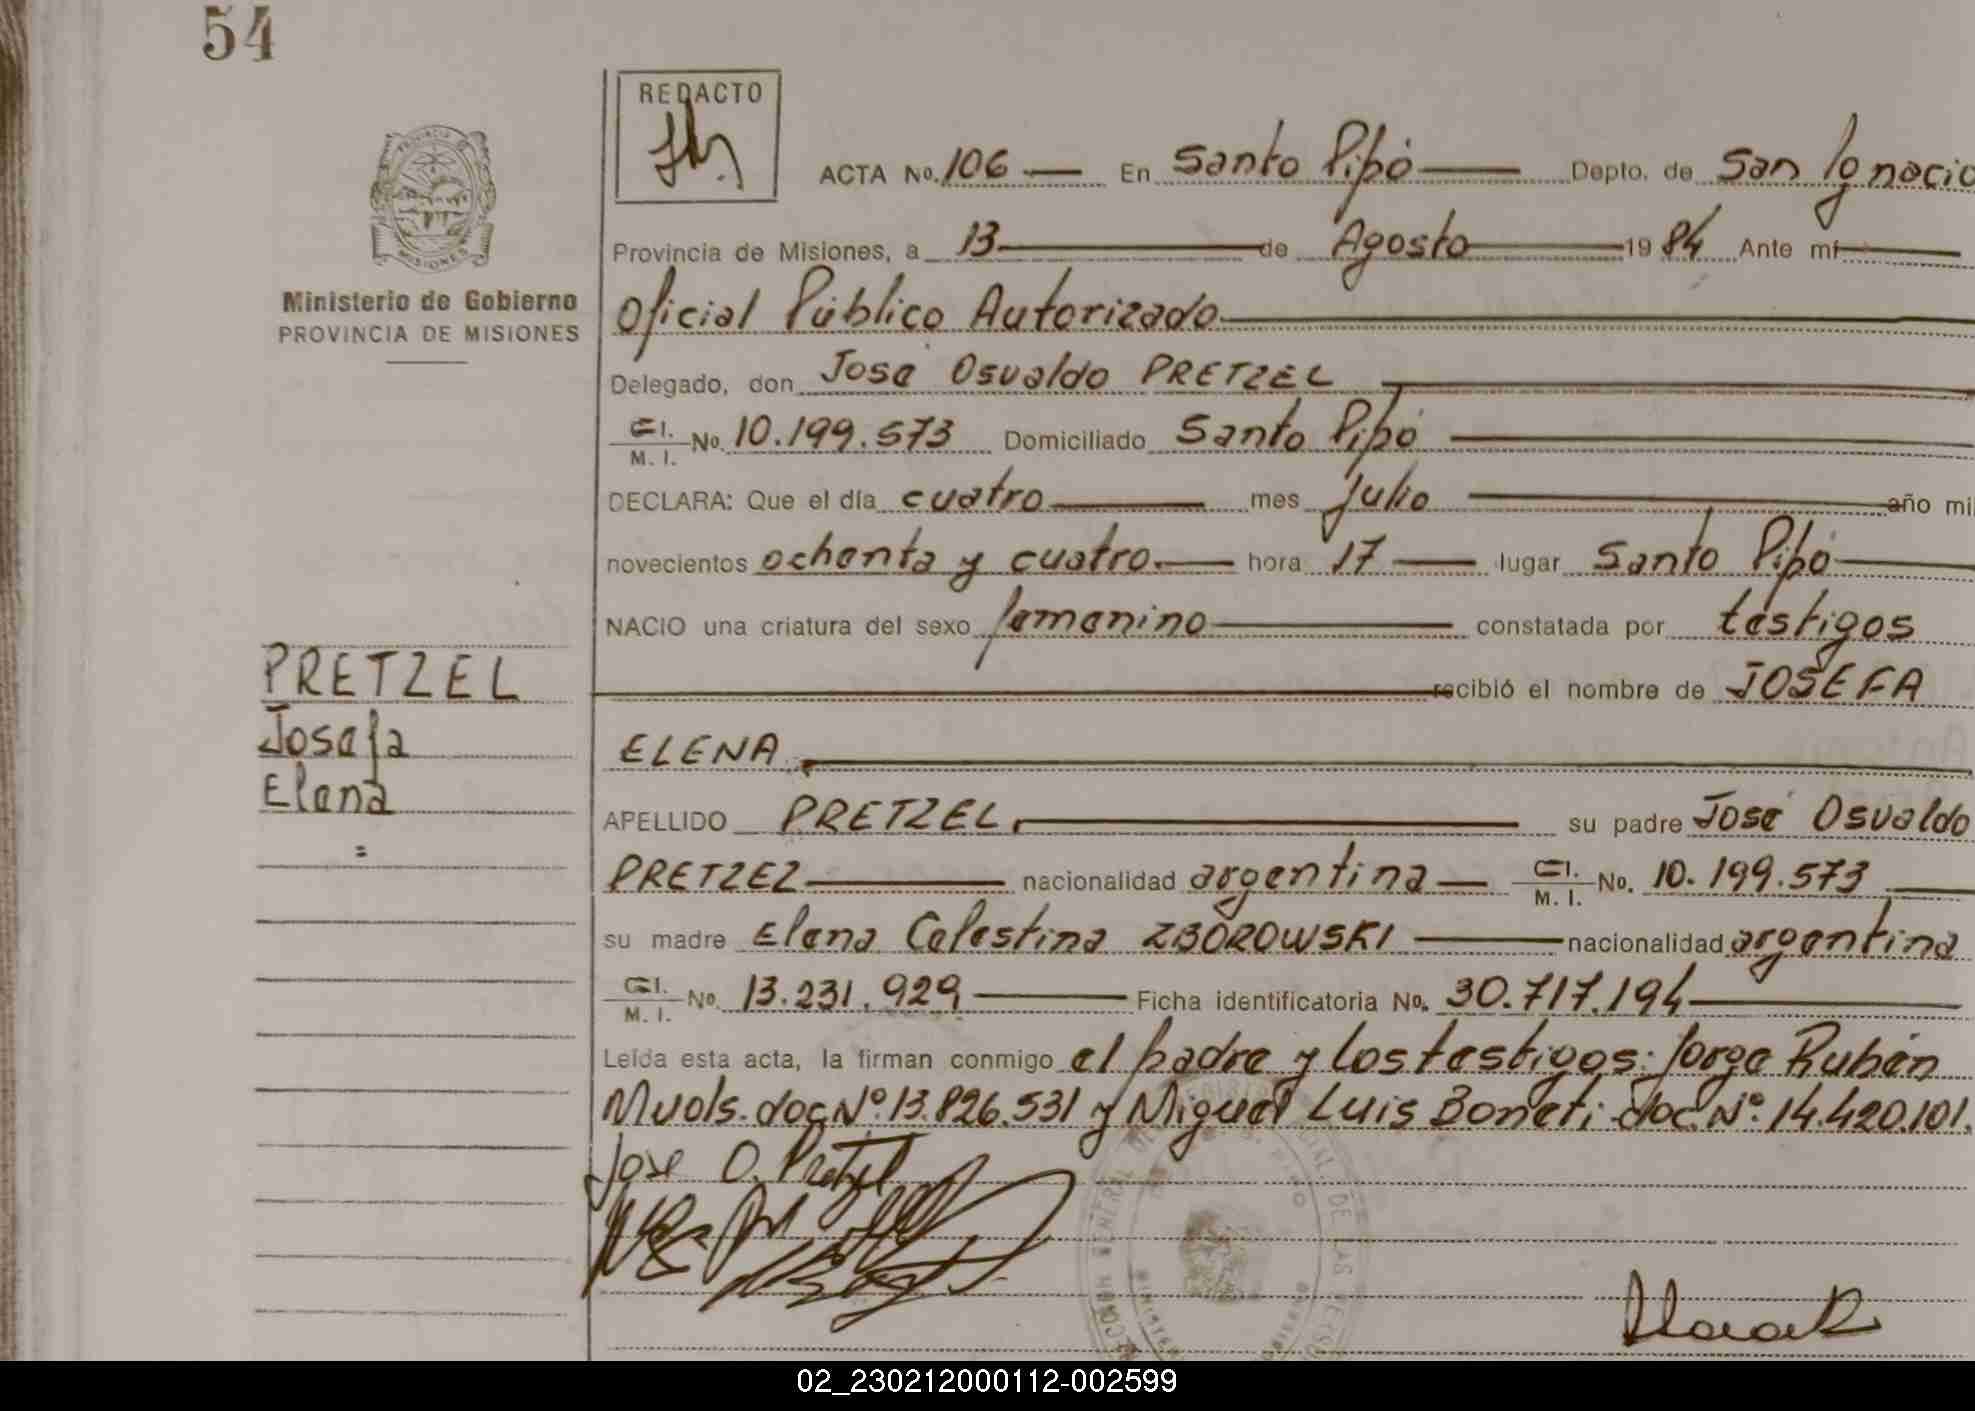 54
REDACTO
ACTA No. 106 En Santo Pipó Depto. de San Ignacio
Provincia de Misiones, a 13 de Agosto 1984 Ante mí
Ministerio de Gobierno
PROVINCIA DE MISIONES
Oficial Público Autorizado
Delegado, don José Osvaldo PRETZEL
C.I. M. I. No. 10.199.573 Domiciliado Santo Pipó
DECLARA: Que el día cuatro mes Julio año mil
novecientos ochenta y cuatro hora 17 lugar Santo Pipó
NACIO una criatura del sexo femenino constatada por testigos
recibió el nombre de JOSEFA
PRETZEL
Josefa
Elena
=
ELENA
APELLIDO PRETZEL su padre José Osvaldo
PRETZEL nacionalidad argentina C.I. M. I. No. 10.199.573
su madre Elena Celestina ZBOROWSKI nacionalidad argentina
C.I. M. I. No. 13.231.929 Ficha identificatoria No. 30.717.194
Leída esta acta, la firman conmigo el padre y los testigos: Jorge Rubén
Muols. doc. Nº. 13.826.531 y Miguel Luis Boneti doc. Nº. 14.420.101.
Jose O. Pretzel
02_230212000112-002599